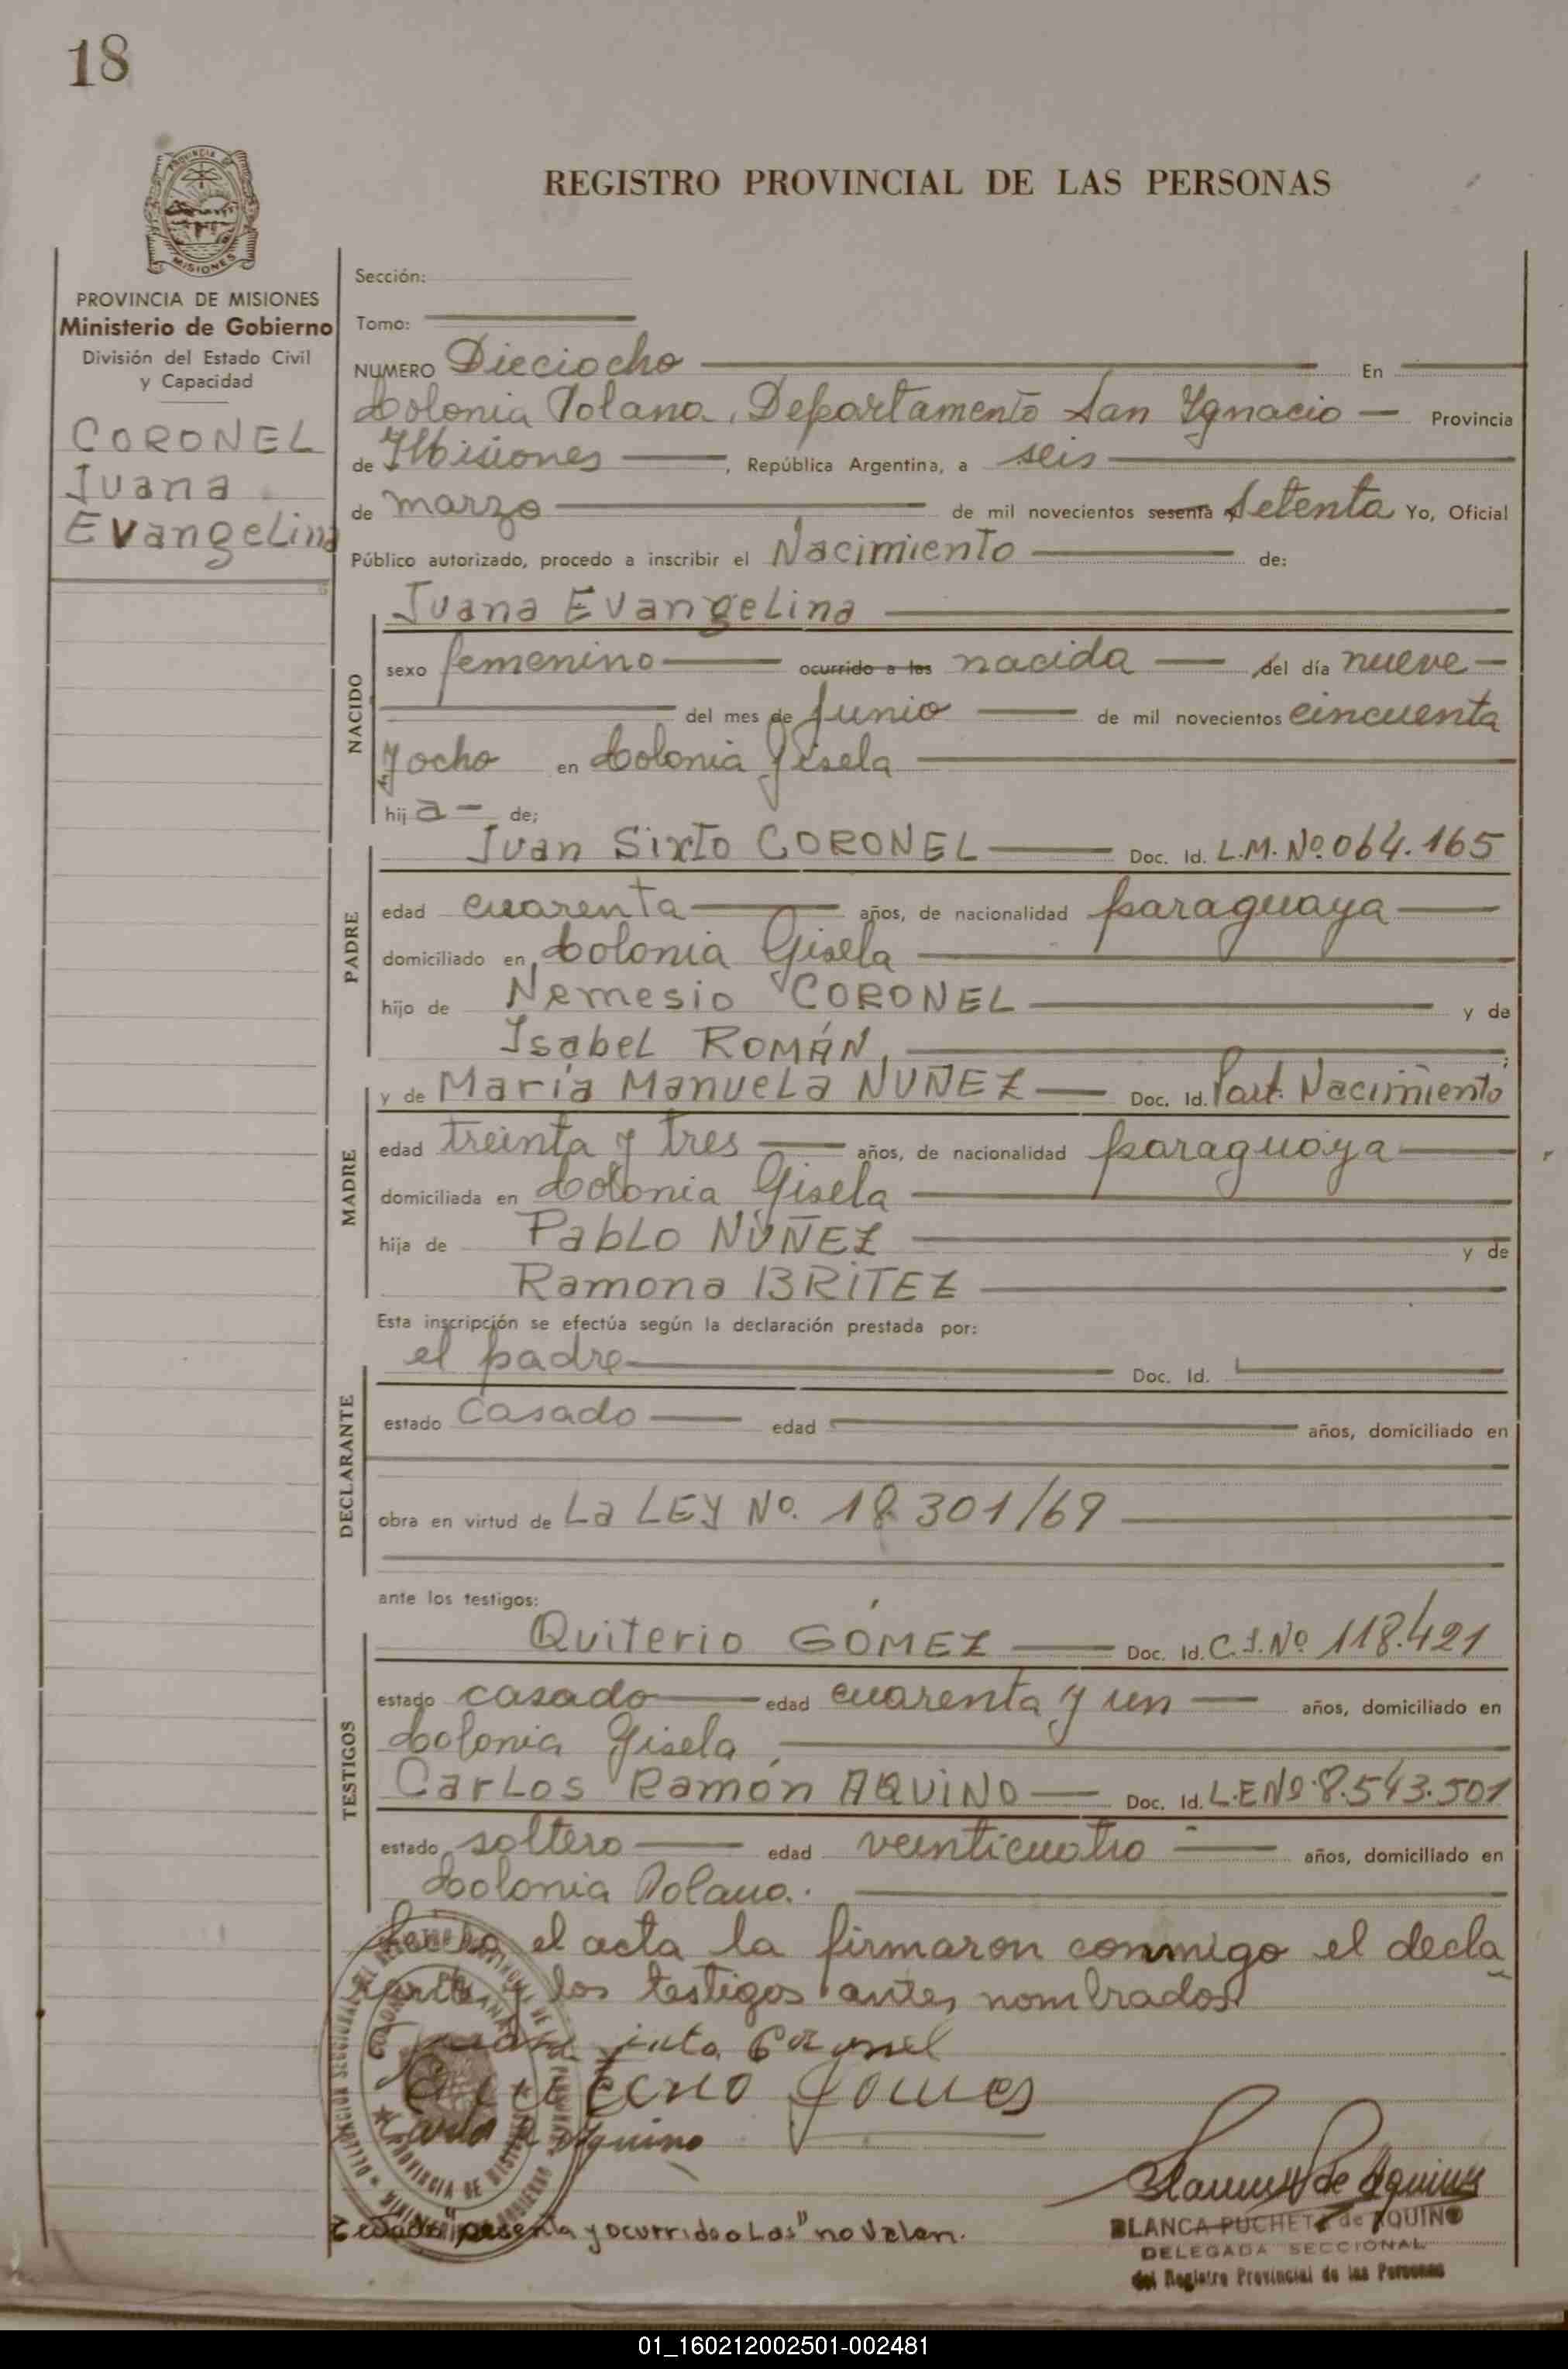 18
REGISTRO PROVINCIAL DE LAS PERSONAS
PROVINCIA DE
MISIONES
PROVINCIA DE MISIONES
Ministerio de Gobierno
División del Estado Civil
y Capacidad
CORONEL
Juana
Evangelina
Sección:
Tomo:
NUMERO Dieciocho En
Colonia Polana, Departamento San Ignacio Provincia
de Misiones, República Argentina, a seis
de marzo de mil novecientos sesenta y setenta Yo, Oficial
Público autorizado, procedo a inscribir el Nacimiento de:
NACIDO
Juana Evangelina
sexo femenino ocurrido a las nacida del día nueve
del mes de junio de mil novecientos cincuenta
y ocho en Colonia Gisela
hija de;
PADRE
Juan Sixto CORONEL Doc. Id. L.M. Nº 064.165
edad cuarenta años, de nacionalidad paraguaya
domiciliado en Colonia Gisela
hijo de Nemesio CORONEL y de
Isabel ROMÁN,
MADRE
y de María Manuela NUÑEZ Doc. Id. Part. Nacimiento
edad treinta y tres años, de nacionalidad paraguaya
domiciliada en Colonia Gisela
hija de Pablo NUÑEZ y de
Ramona BRITEZ
Esta inscripción se efectúa según la declaración prestada por:
DECLARANTE
el padre Doc. Id.
estado Casado edad años, domiciliado en
obra en virtud de La LEY Nº. 18.301/69
ante los testigos:
TESTIGOS
Quiterio GÓMEZ Doc. Id. C.I. Nº 118.421
estado casado edad cuarenta y un años, domiciliado en
Colonia Gisela
Carlos Ramón AQUINO Doc. Id. L.E Nº 8.543.501
estado soltero edad veinticuatro años, domiciliado en
Colonia Polana.
el acta la firmaron conmigo el decla
rante y los testigos antes nombrados
Coronel
Quiterio Gomes
Aquino
de Aquino
BLANCA PUCHETA de AQUINO
DELEGADA SECCIONAL
del Registro Provincial de las Personas
Testado "sesenta y ocurrido a las" no valen.
01_160212002501-002481